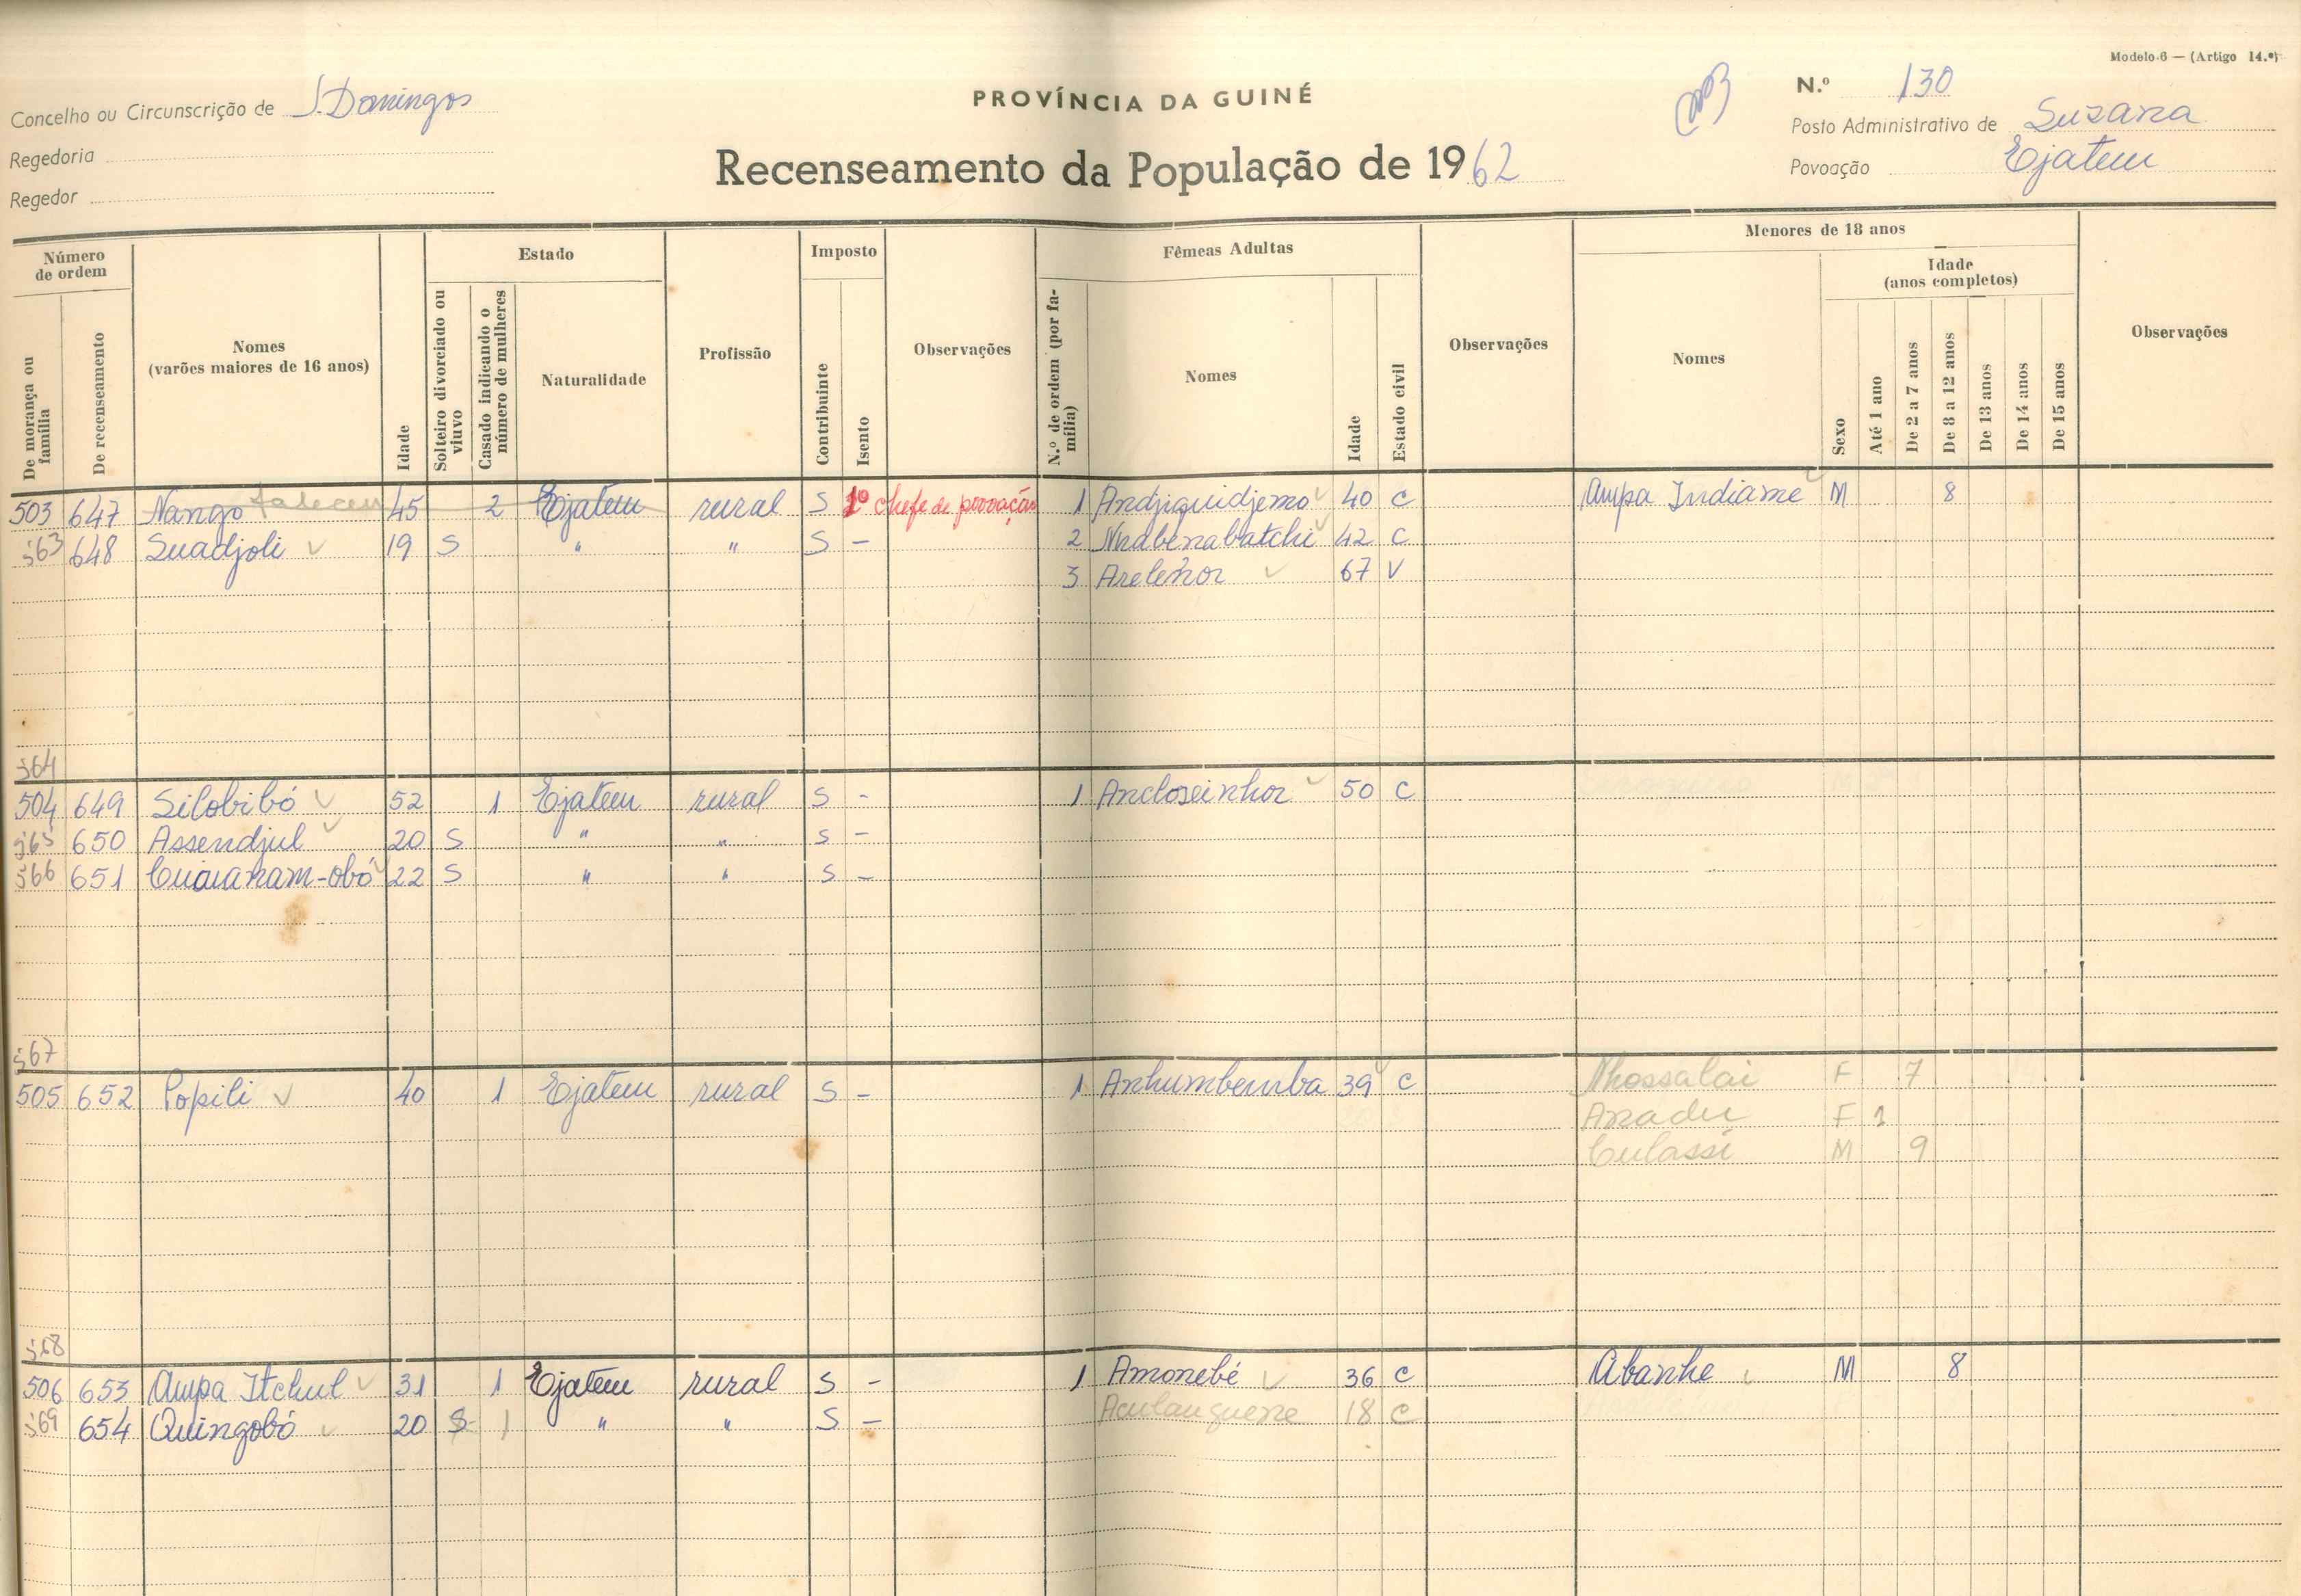 Modelo 6 — (Artigo 14.º)
Concelho ou Circunscrição de S. Domingos
PROVÍNCIA DA GUINÉ
N.º 130
Regedoria
Recenseamento da População de 1962
Posto Administrativo de Suzana
Regedor
Povoação Ejatem
Número de ordem
Estado
Imposto
Fêmeas Adultas
Menores de 18 anos
Idade (anos completos)
De morança ou família
De recenseamento
Nomes (varões maiores de 16 anos)
Idade
Solteiro divorciado ou viuvo
Casado indicando o número de mulheres
Naturalidade
Profissão
Contribuinte
Isento
Observações
N.º de ordem (por família)
Nomes
Idade
Estado civil
Observações
Nomes
Sexo
Até 1 ano
De 2 a 7 anos
De 8 a 12 anos
De 13 anos
De 14 anos
De 15 anos
Observações
503 647 Nango faleceu 45 2 Ejatem rural S 1º chefe de povoação 1 Andjiguidjemo 40 C Ampa Indiame M 8
563 648 Suadjoli 19 S " " S - 2 Nhabenabatchi 42 C
3 Arelenhor 67 V
564
504 649 Silobibó 52 1 Ejatem rural S - 1 Ancloseinhor 50 C
565 650 Assendjul 20 S " " S -
566 651 Cuaianam-obó 22 S " " S -
567
505 652 Popili 40 1 Ejatem rural S - 1 Anhumbemba 39 C Nhossalai F 7
Anadu F 1
Culassi M 9
568
506 653 Ampa Itchul 31 1 Ejatem rural S - 1 Amonebé 36 C Abanhe M 8
569 654 Quingobó 20 S 1 " " S - Aculauguene 18 C